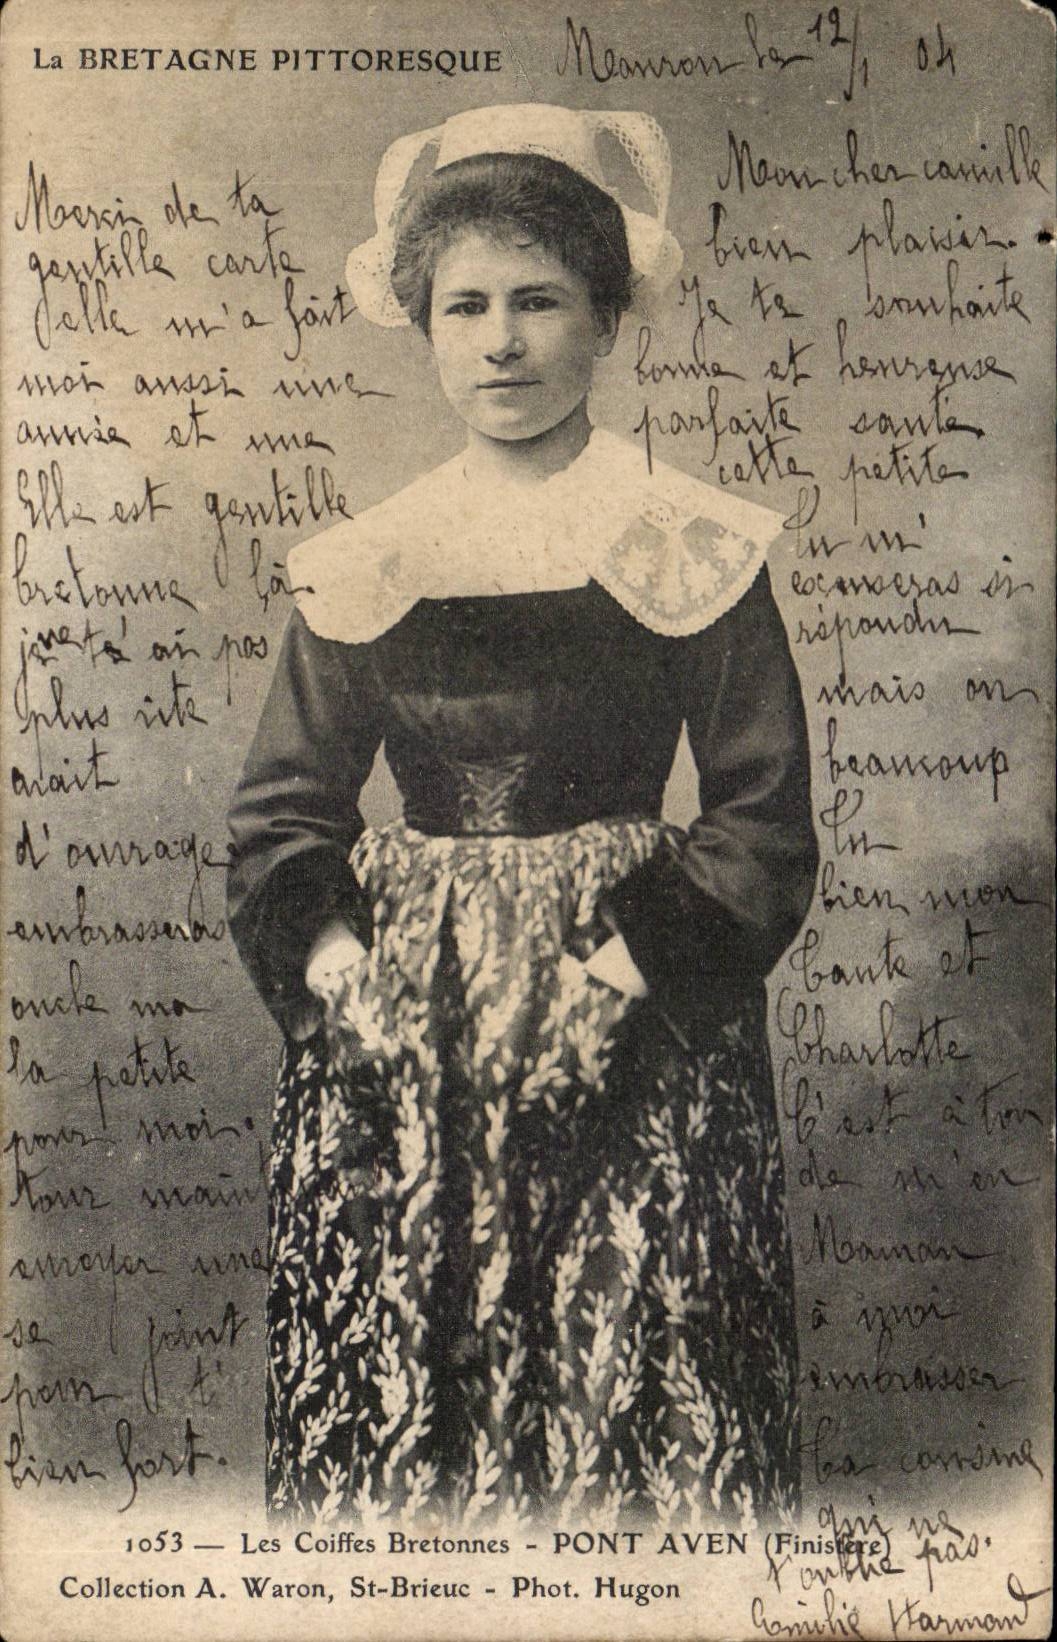 La BRETAGNE PITTORESQUE
Mauron le 12/1 04
Mon cher camille
Merci de ta
gentille carte
elle m'a fait bien plaisir.
Je te souhaite
moi aussi une bonne et heureuse
année et une parfaite santé.
Elle est gentille cette petite
bretonne là. Tu m'
excuseras si
je ne t'ai pas répondu
plus vite mais on
avait beaucoup
d'ouvrage Tu
embrasseras bien mon
oncle ma Tante et
la petite Charlotte
pour moi. C'est à ton
tour maintenant de m'en
envoyer une Maman
se joint à moi
pour t' embrasser
bien fort. Ta cousine
qui ne
t'oublie pas.
Emilie Harmand
1053 — Les Coiffes Bretonnes - PONT AVEN (Finistère)
Collection A. Waron, St-Brieuc - Phot. Hugon